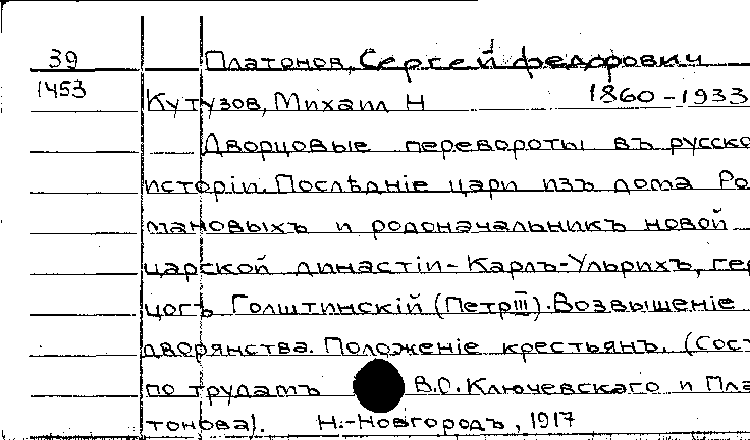 39 Платонов, Сергей Федорович
1453 Кутузов, Михаил Н 1860-1933
Дворцовые перевороты въ русско
исторіи. Послѣдніе цари изъ дома Ро
мановыхъ и родоначальникъ новой
царской династіи - Карлъ-Ульрихъ, гер
цогъ Голштинскій (Петръ III). Возвышеніе
дворянства. Положеніе крестьянъ. (Сост
по трудамъ В.О. Ключевскаго и Пла
тонова). Н.-Новгородъ, 1917